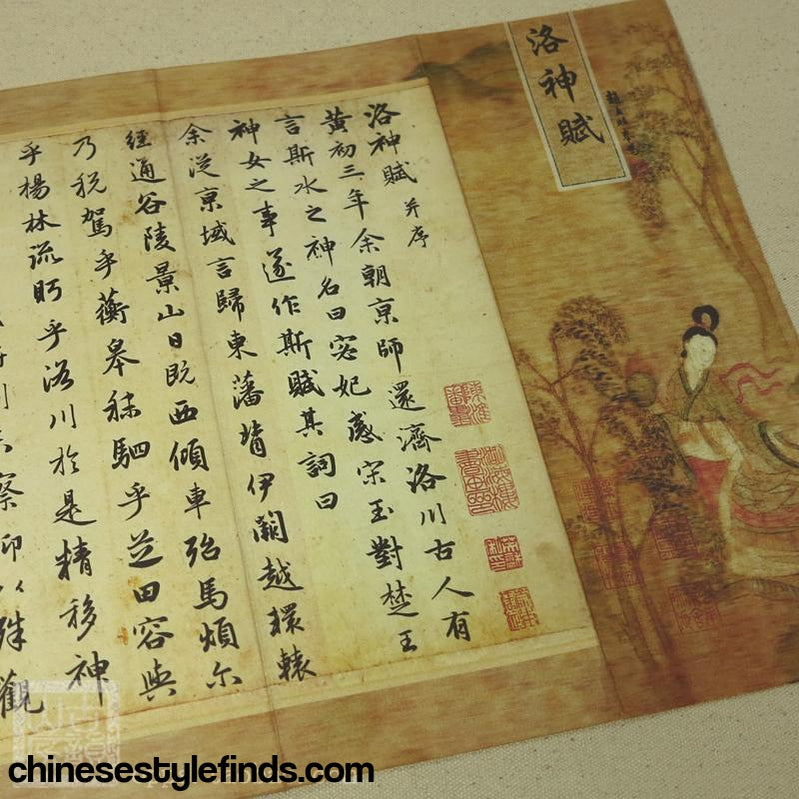 洛神賦
洛神賦 并序
黄初三年余朝京師還濟洛川古人有
言斯水之神名曰宓妃感宋玉對楚王
神女之事遂作斯賦其詞曰
余従京域言歸東藩背伊闕越轘轅
經通谷陵景山日既西傾車殆馬煩尔
乃税駕乎蘅皋秣駟乎芝田容與
乎楊林流眄乎洛川於是精移神
察仰以殊觀
chinesestylefinds.com